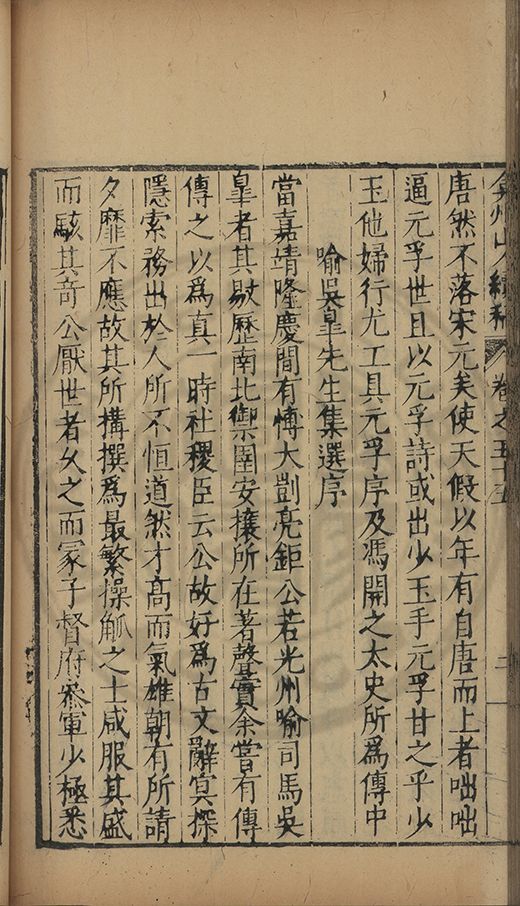 弇州山人續稿 卷之五十五 二
唐然不落宋元矣使天假以年有自唐而上者咄咄
逼元孚世且以元孚詩或出少玉手元孚甘之乎少
玉他婦行尤工具元孚序及馮開之太史所為傳中
喻吳臯先生集選序
當嘉靖隆慶間有博大剴亮鉅公若光州喻司馬吳
臯者其敭歷南北禦圉安攘所在著聲實余嘗有傳
傳之以為真一時社稷臣云公故好為古文辭冥探
隱索務出於人所不恒道然才高而氣雄朝有所請
夕靡不應故其所搆撰為最繁操觚之士咸服其盛
而駭其奇公厭世者久之而冡子督府叅軍少極悉